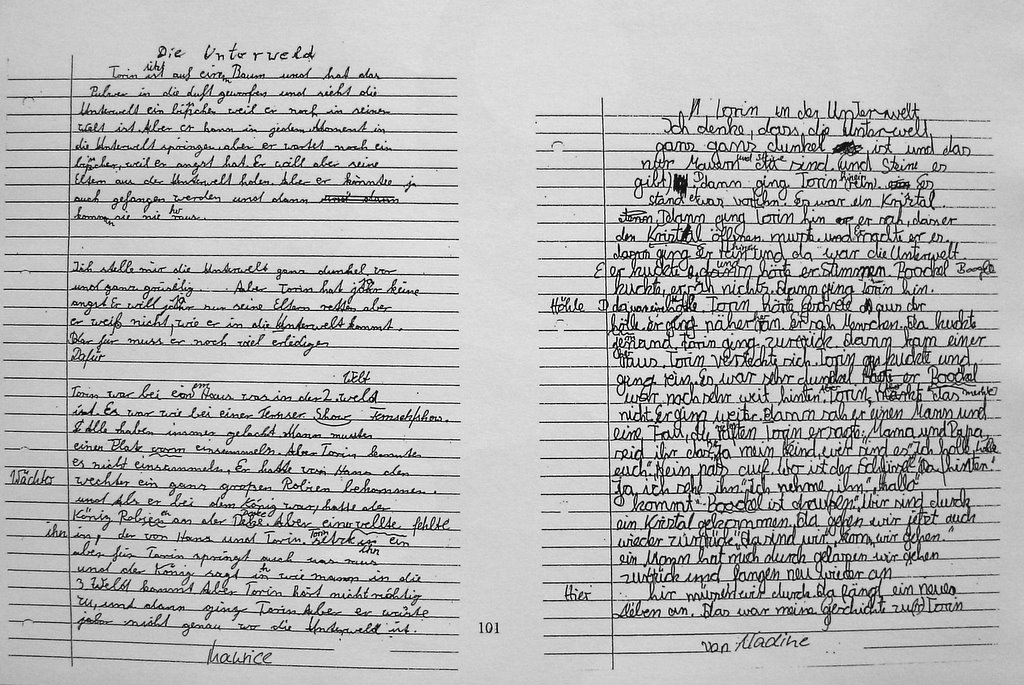 Die Unterweld
Torin sitzt auf einem Baum und hat das
Pulver in die Luft geworfen und sieht die
Unterwelt ein bißchen weil er noch in seiner
welt ist Aber er kann in jedem Moment in
die Unterwelt springen, aber er wartet noch ein
bißchen, weil er angst hat. Er will aber seine
Eltern aus der Unterwelt holen. Aber er könntee ja
auch gefangen werden und dann
kommen sie nie raus.
Ich stelle mir die Unterwelt ganz dunkel vor
und ganz gruselig. Aber Torin hat keine
angst Er will nur seine Eltern retten aber
er weiß nicht, wie er in die Unterwelt kommt.
Dar für muss er noch viel erledigen
Dafür
Welt
Torin war bei einem Haus was in der 2. weld
ist. Es war wie bei einer Fernser Show Fernsehshow.
Alle haben immer gelacht Mann musste
einer Plate einsammeln. Aber Torin konnte
es nicht einsammeln. Er hatte von Hans den
Wächter wechter ein ganz großen Robien bekommen.
und Als er bei dem König war, hatte der
König Robien an der Aber eine vellte fehlte
ihm im, der von Hans und Torin ein
aber für Torin springt auch was raus
und der König sagt in wie mann in die
3 Weldt kommt Aber Torin hört nicht richtig
zu, und dann ging Torin Aber er wüste
nicht genau wo die Unterweld ist.
Maurice
101
Torin in der Unterwelt
Ich denke, dass, die Unterwelt,
ganz ganz dunkel ist und das
nur Mauern und Steine
gibt). Dann ging Torin hinein. Es
stand etwas vorihn. Es war ein Kristal.
Dann ging Torin hin er sah, das er
den Kristal öffnen muste. und machte er er.
dann ging Er rein und da war die Unterwelt.
E er kuckte und dann hörte er Stimmen Boockel Boogle
kuckte, er sah nichts. Dann ging Torin hin.
Höhle Torin hörte aus der
hölle. er ging näher ran. Er sah Menschen. Da kuckte
jemand. Torin ging zurück. Dann kam einer
raus. Torin versteckte sich. Torin kuckte und
ging rein. Es war sehr dunkel. er Boockel
war noch sehr weit hinten. Torin das merkte
nicht. Er ging weiter. Dann sah er einen Mann und
eine Frau, die Torin er sagte: "Mama und Papa
seid ihr das." "Ja mein Kind, wer sind es" "Ich holle
euch" "Nein, pass auf. Wo ist der Schlüssel" "Da hinten."
"Ja, ich sehe ihn" "Ich nehme ihn" "hallo"
kommt "Boockel ist draußen" "wir sind durch
ein Kristal gekommen, Da gehen wir jetzt auch
wieder zurück" "da sind wir" "komm, wir gehen."
"ein Mann hat mich durch gelassen wir gehen
zurück und fangen neu wieder an
Hier hir müssen wir durch. Da fängt ein neues
Leben an. Das war meine Geschichte zu(r) Torin
von Nadine